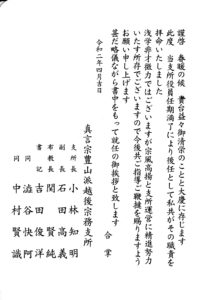 謹啓　春暖の候　貴台益々御清栄のことと大慶に存じます
此度　当支所役員任期満了により後任として私共がその職責を
拝命いたしました
浅学非才微力ではございますが宗風高揚と支所運営に精進努力
いたす所存でございますので今後共ご指導ご鞭撻を賜りますよう
お願い申し上げます
甚だ略儀ながら書中をもって就任の御挨拶と致します
合掌
令和二年四月吉日
真言宗豊山派越後宗務支所
支所長　小林知明
副長　石田高義
布教長　関賢純
書記　吉田俊洋
同　澁谷快阿
同　中村賢識